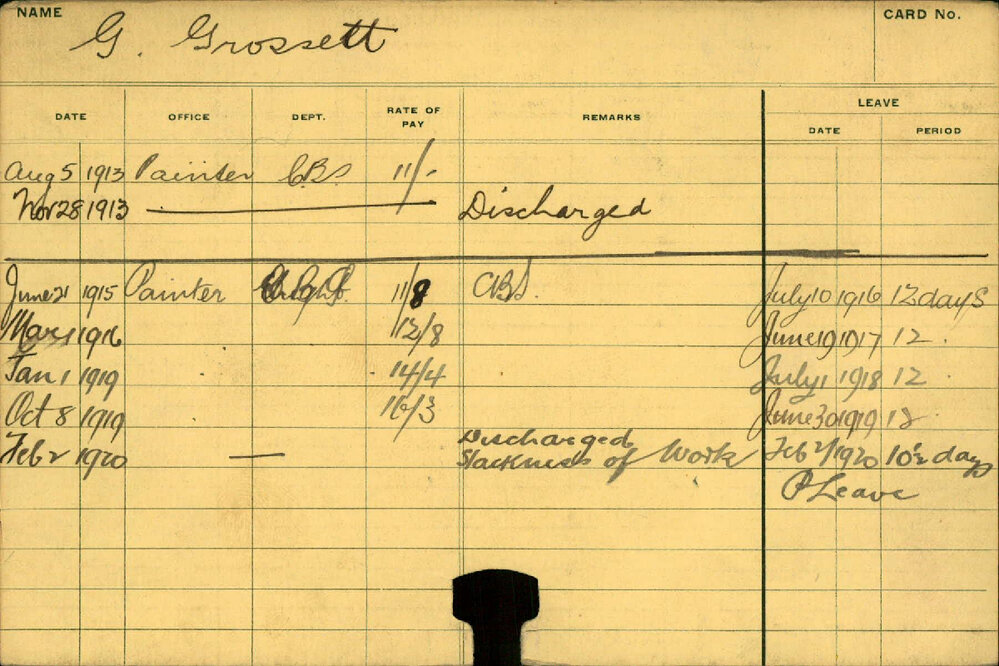 NAME
G. Grossett
CARD NO.
DATE OFFICE DEPT. RATE OF PAY REMARKS LEAVE
DATE PERIOD
Aug 5 1913 Painter C.B.S. 11/-
Nov 28 1913 — Discharged
June 21 1915 Painter 11/8 CBS. July 10 1916 12 days
Mar 1 1916 12/8 June 19 1917 12
Jan 1 1919 14/4 July 1 1918 12
Oct 8 1919 16/3 June 30 1919 12
Feb 2 1920 — Discharged Slackness of Work Feb 2/1920 10½ days
P Leave